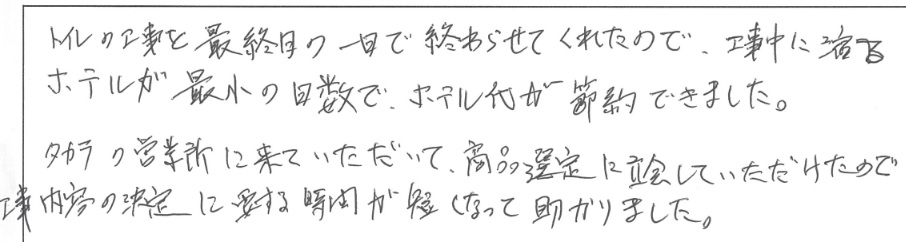 トイレの工事を最終日の一日で終わらせてくれたので、工事中に泊る
ホテルが最小の日数で、ホテル代が節約できました。
タカラの営業所に来ていただいて、商品選定に立会していただけたので
工事内容の決定に要する時間が短くなって助かりました。